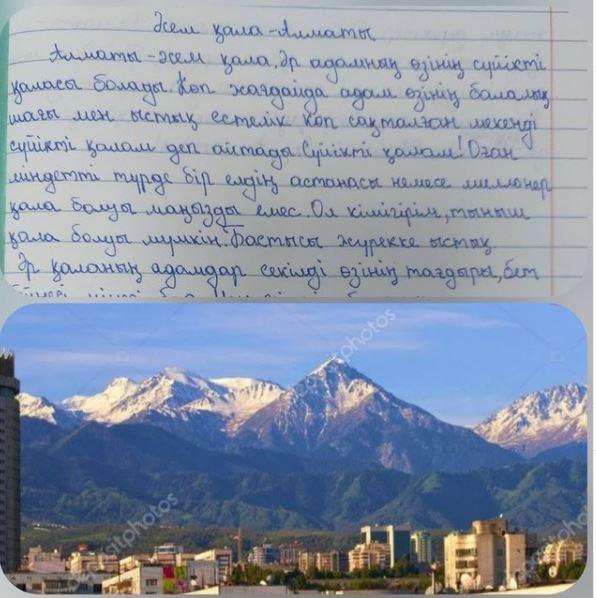 Әсем қала-Алматы
Алматы-әсем қала. Әр адамның өзінің сүйікті
қаласы болады. Көп жағдайда адам өзінің балалық
шағы мен ыстық естелік көп сақталған мекенді
сүйікті қалам деп айтады. Сүйікті қалам! Оған
міндетті түрде бір елдің астанасы немесе миллионер
қала болуы маңызды емес. Ол кімігірім, тыныш
қала болуы мүмкін. Бастысы жүрекке ыстық.
Әр қаланың адамдар секілді өзінің тағдыры, бет
depositphotos
depositphotos